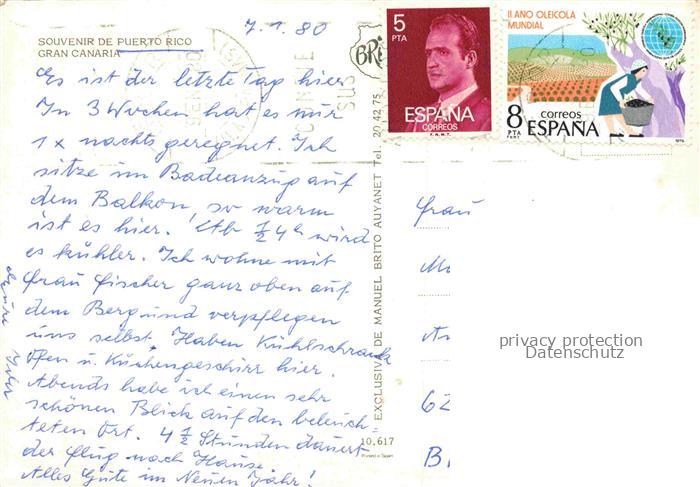 7.1.80
SOUVENIR DE PUERTO RICO
GRAN CANARIA
Es ist der letzte Tag hier
In 3 Wochen hat es nur
1x nachts geregnet. Ich
sitze im Badeanzug auf
dem Balkon, so warm
ist es hier. Ab ½ 4h wird
es kühler. Ich wohne mit
Frau Fischer ganz oben auf
dem Berg und verpflegen
uns selbst. Haben Kühlschrank
Ofen u. Küchengeschirr hier.
Abends habe ich einen sehr
schönen Blick auf den beleuch-
teten Ort. 4 ½ Stunden dauert
der Flug nach Hause.
Alles Gute im Neuen Jahr!
EXCLUSIVAS DE MANUEL BRITO AUYANET Tel. 20 42 75
10.617
Printed in Spain
5
PTA
ESPAÑA
CORREOS
F.N.M.T.
II AÑO OLEICOLA
MUNDIAL
8
PTA
correos
ESPAÑA
1979
Frau
62
B
privacy protection
Datenschutz